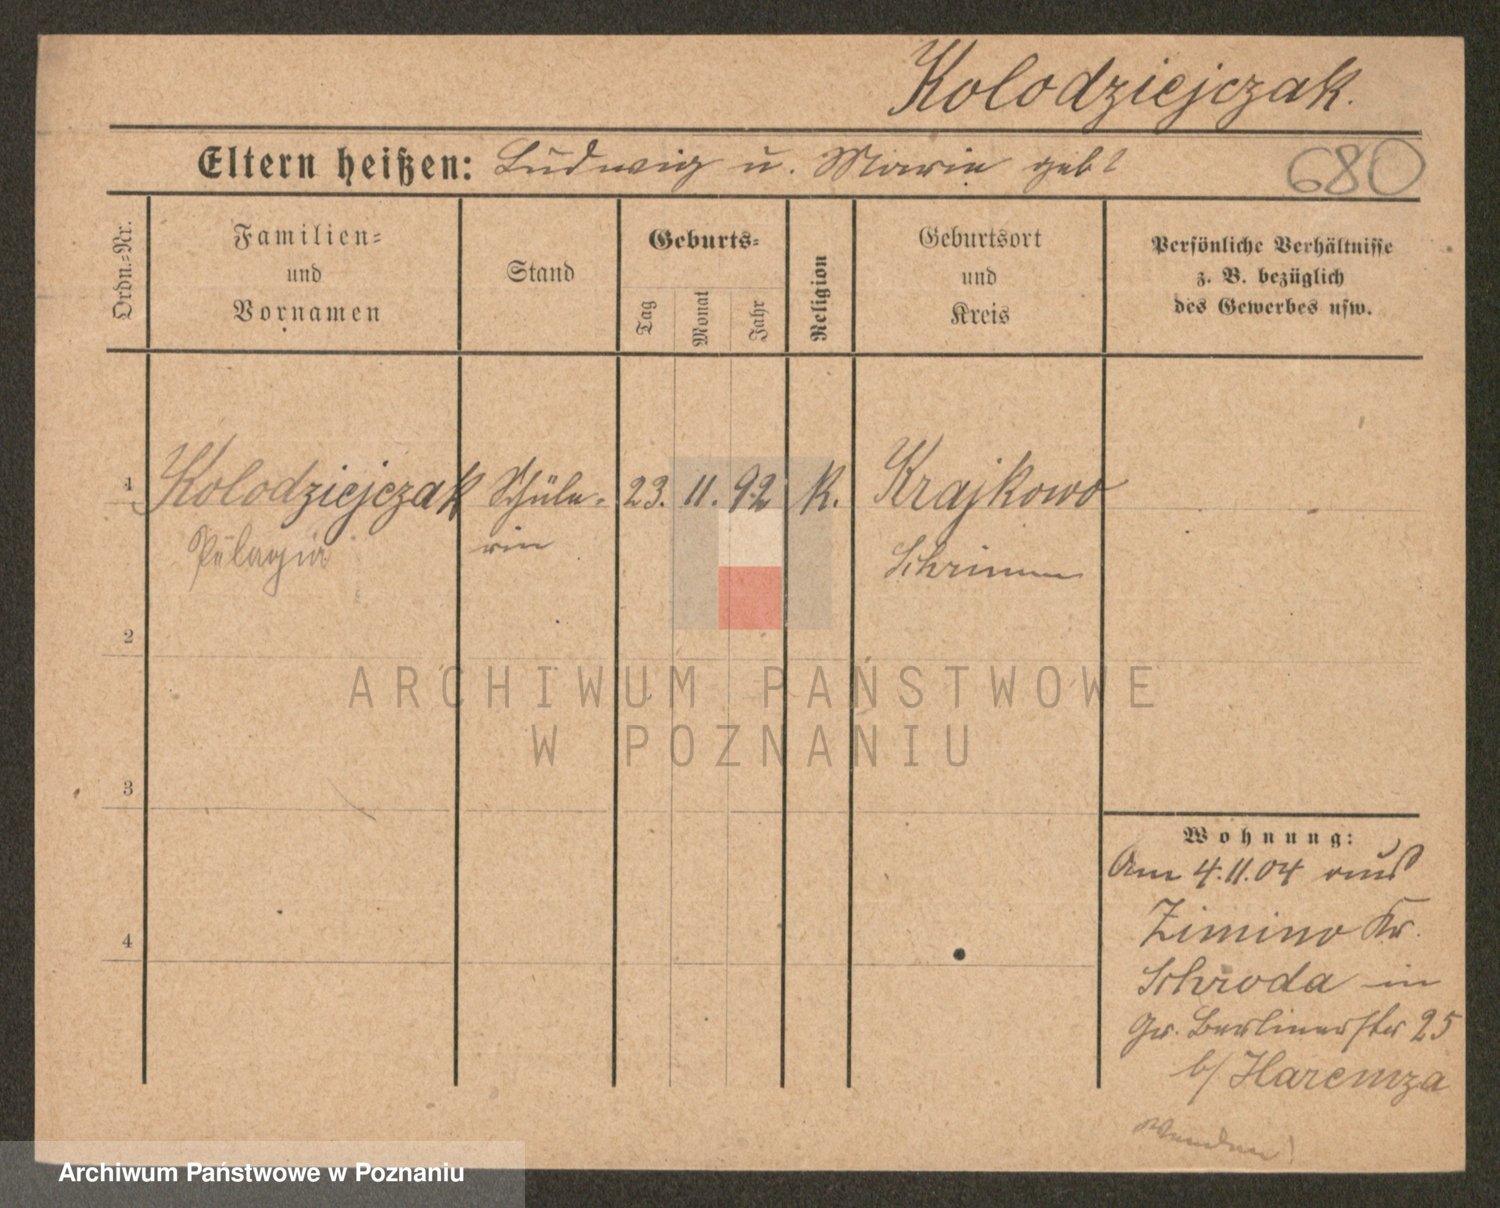 Kolodziejczak.
Eltern heißen: Ludwig u. Marie geb?
680
Ordn.-Nr.
Familien-
und
Vornamen
Stand
Geburts-
Tag
Monat
Jahr
Religion
Geburtsort
und
Kreis
Persönliche Verhältnisse
z. B. bezüglich
des Gewerbes usw.
1 Kolodziejczak Schüle- 23. 11. 92 K. Krajkowo
Pelagia rin Schrimm
2
3
4
Wohnung:
Am 4.11.04 aus
Zimino Kr.
Schroda in
Gr. Berlinerstr 25
b/ Haremza
Wenden!
ARCHIWUM PAŃSTWOWE
W POZNANIU
Archiwum Państwowe w Poznaniu